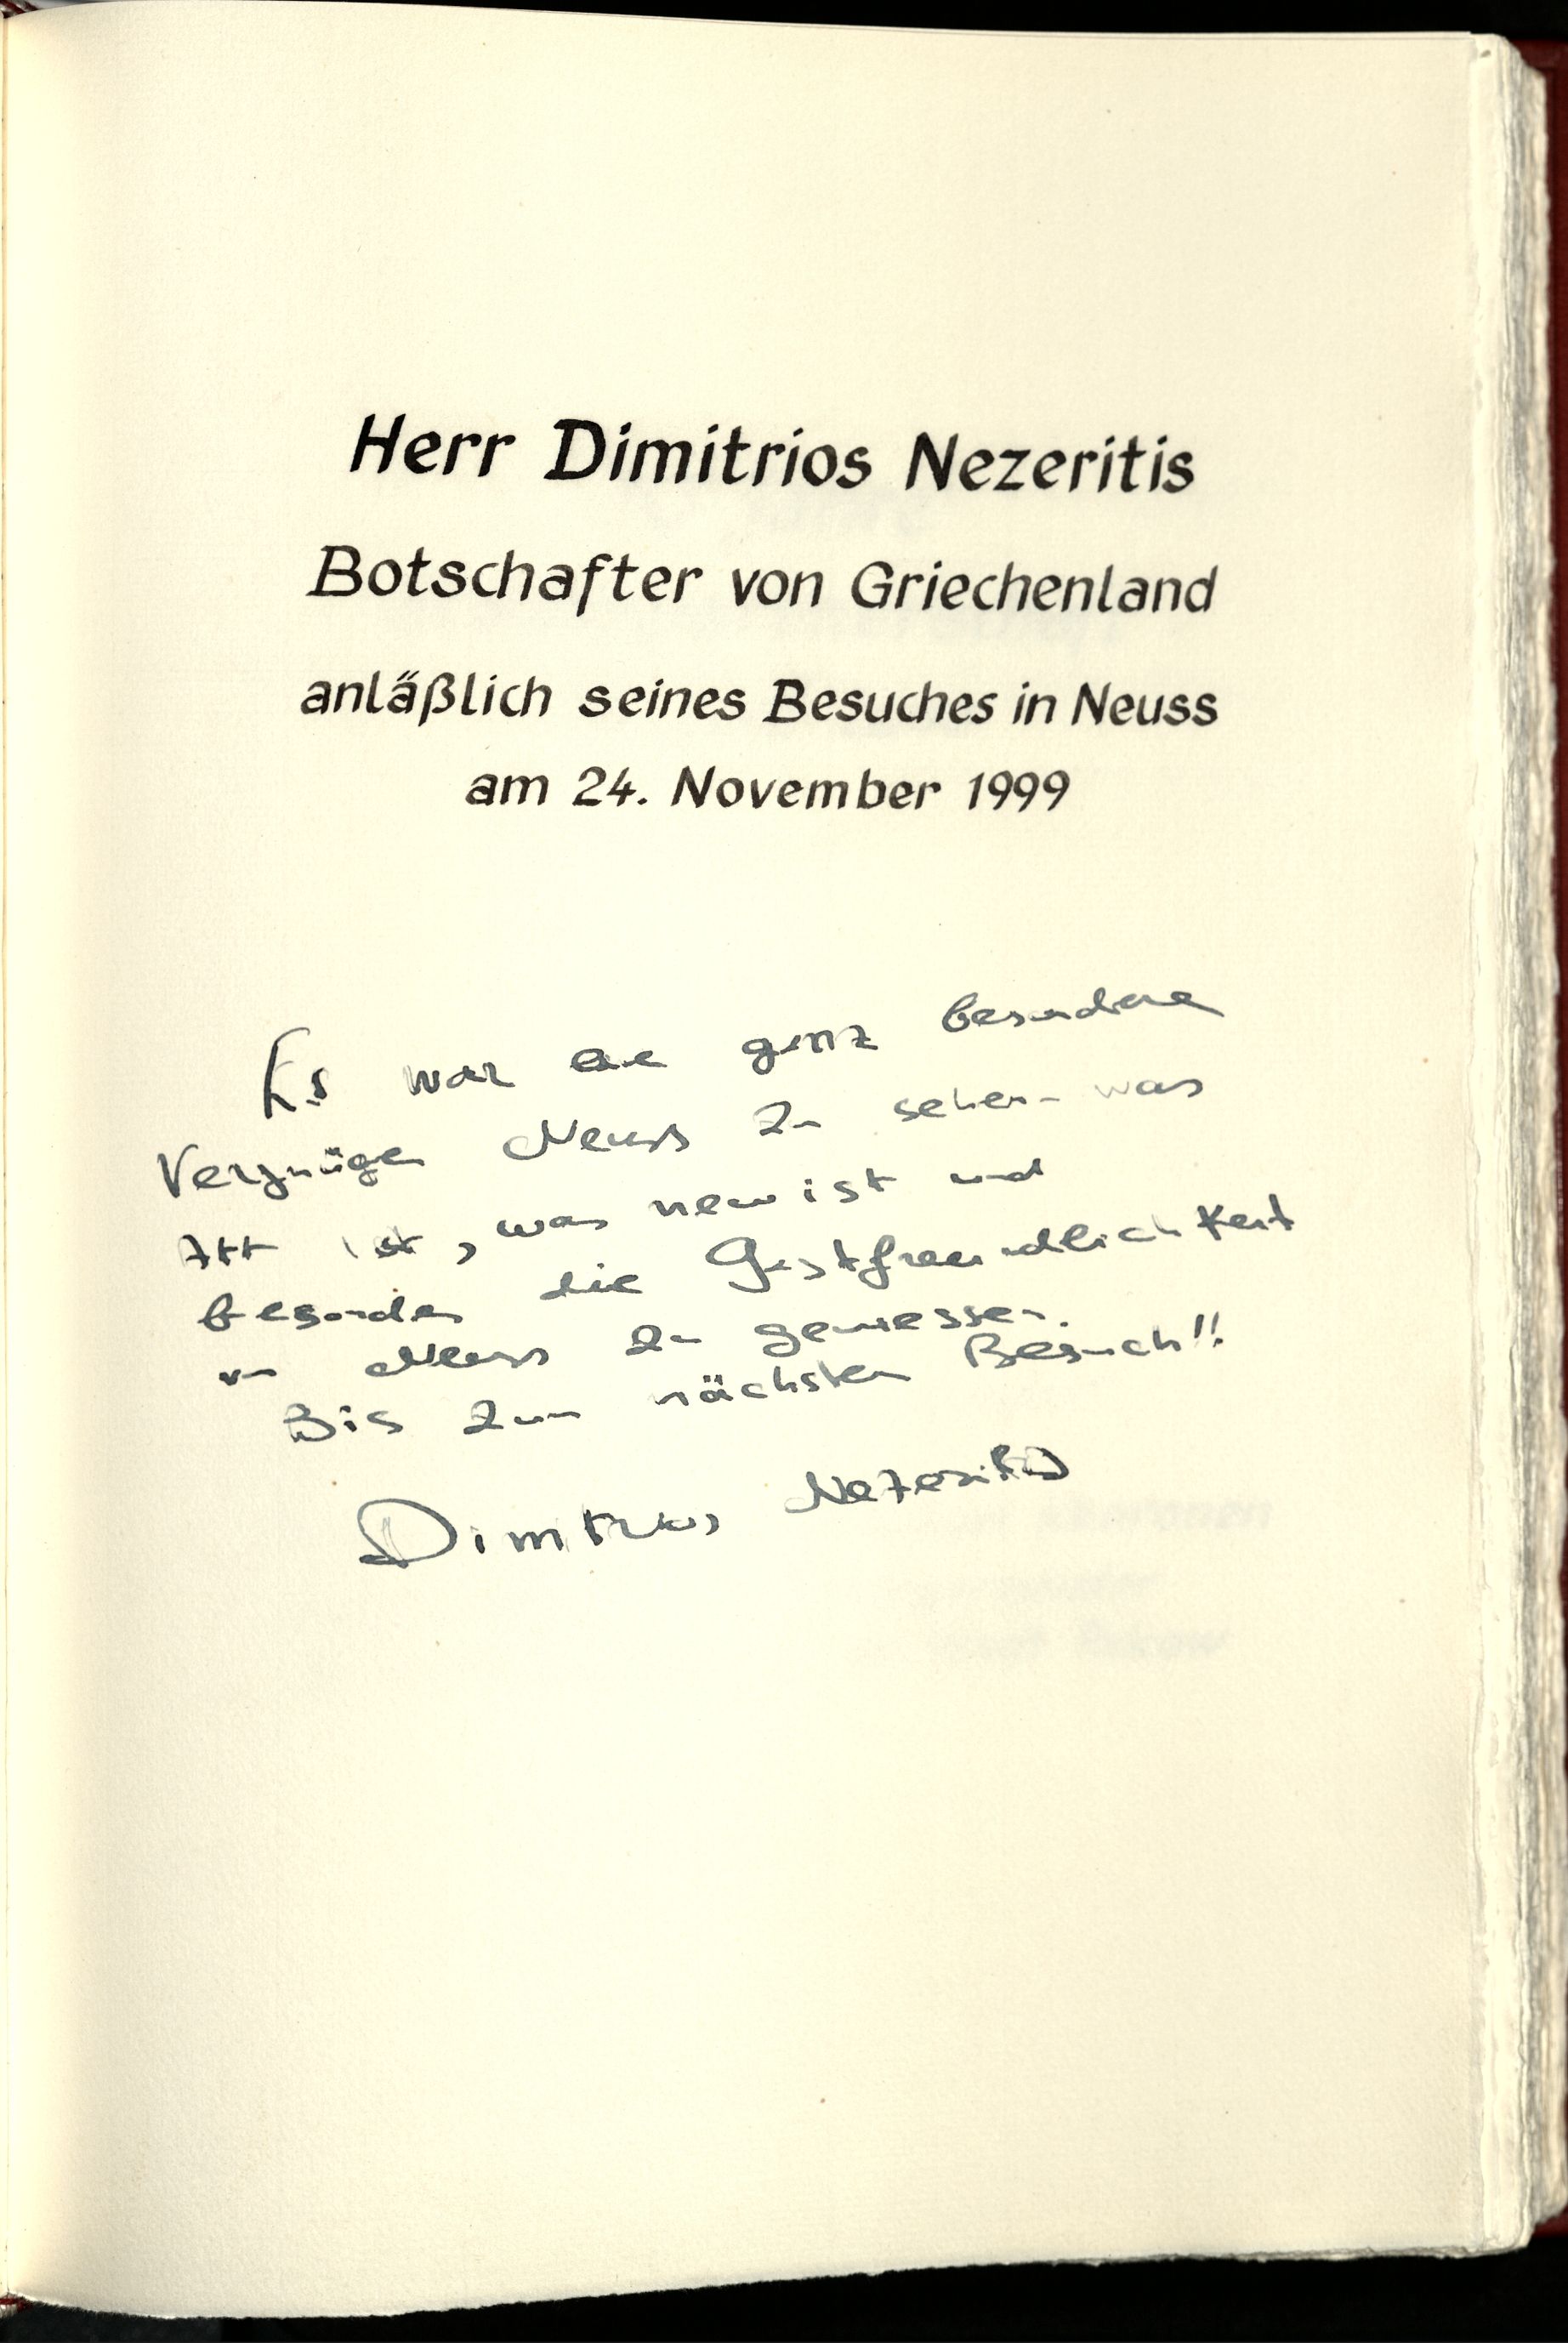 Herr Dimitrios Nezeritis
Botschafter von Griechenland
anläßlich seines Besuches in Neuss
am 24. November 1999
Es war eine ganz besondere
Vergnügen Neuss zu sehen was
ist, was new ist und
besonders die Gastfreundlichkeit
in Neuss zu geniessen.
Bis zum nächsten Besuch!!
Dimitrios Nezeritis